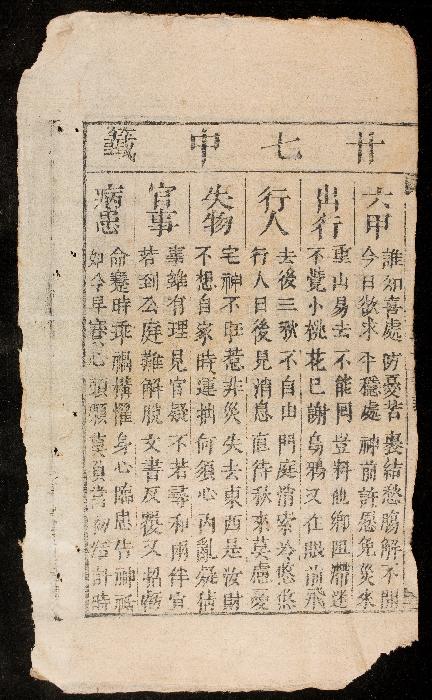 廿七中籤
六甲
誰知喜處防憂苦 裏結愁腸解不開
今日欲求平穩處 神前許愿免災來
出行
重山易去不能回 豈料他鄉阻滯迷
不覺小桃花已謝 烏鴉又在眼前飛
行人
去後三秋不自由 門庭清索冷悠悠
行人日後見消息 直待秋來莫慮憂
失物
宅神不旺惹非災 失去東西是汝財
不想自家時運拙 何須心內亂疑猜
官事
事雖有理見官疑 不若尋和兩伴宜
若到公庭難解脫 文書反覆又招虧
病患
命蹇時乖禍搆罹 身心臨患告神祇
如今早 心頭願 莫負當 時